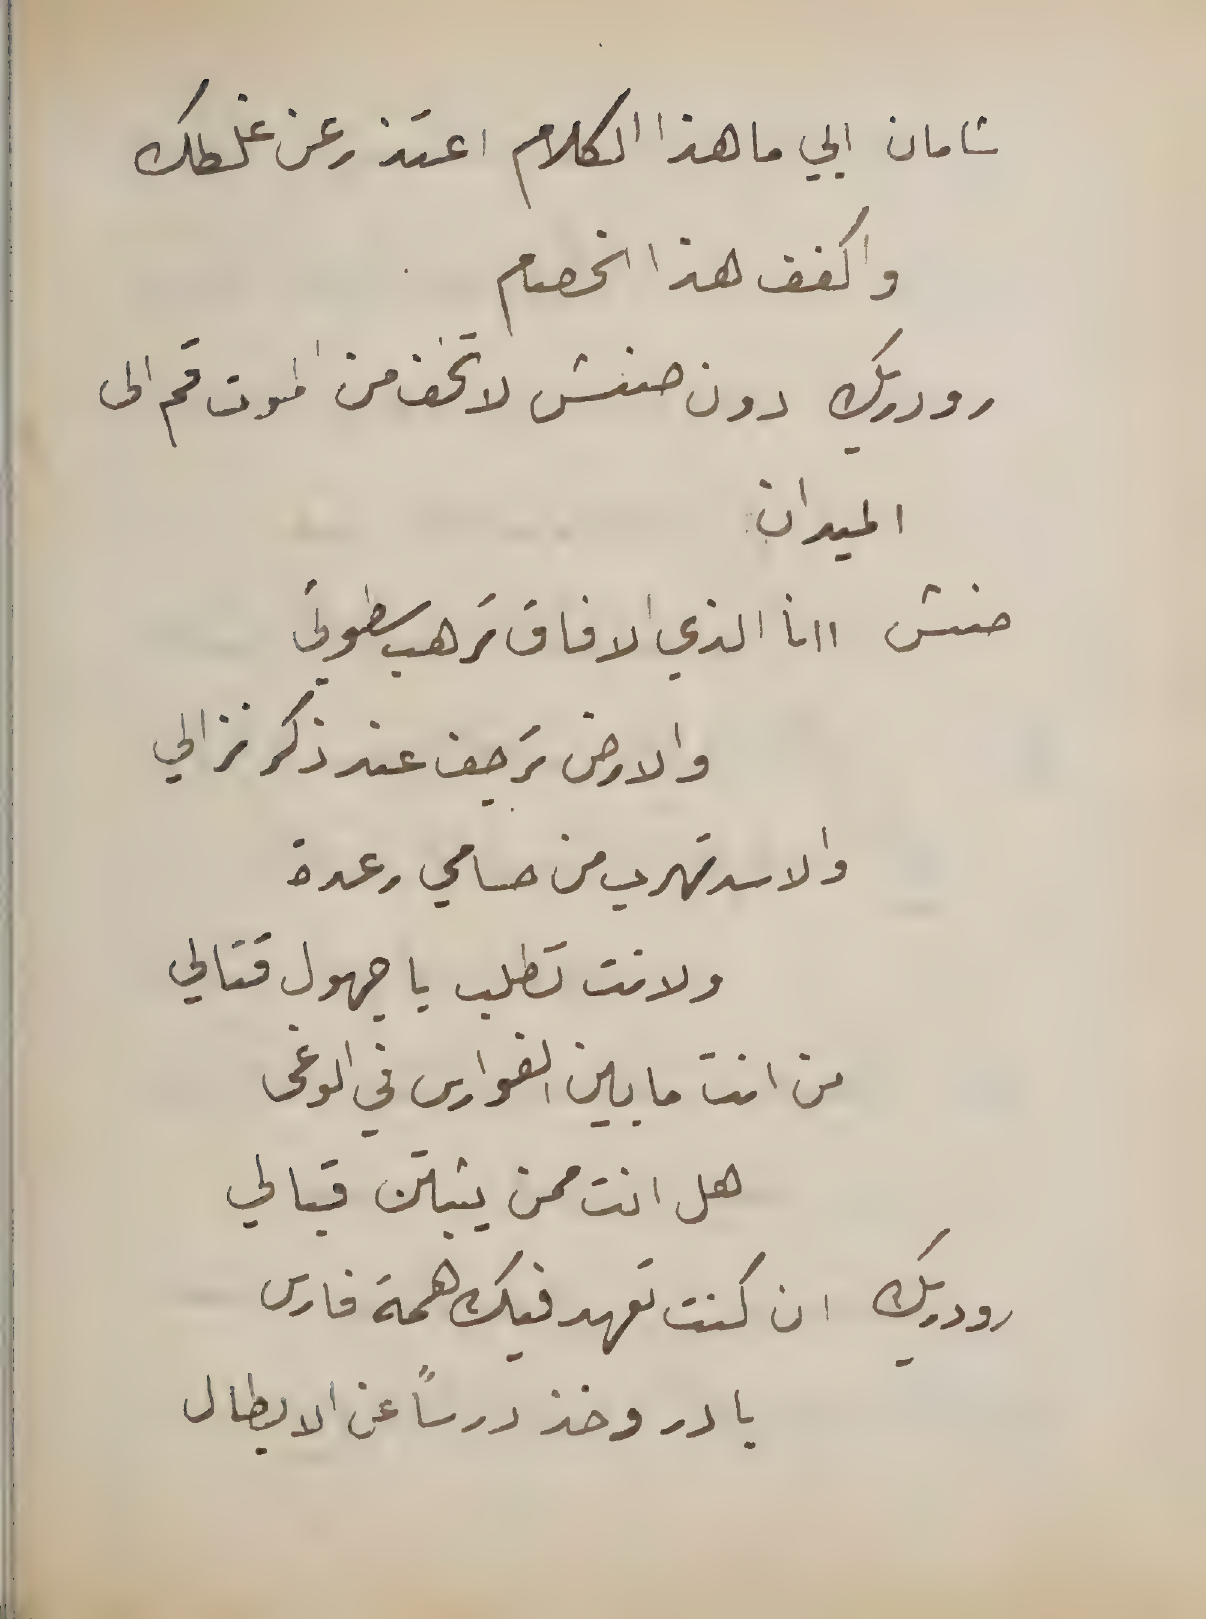 شامان ابي ما هذا الكلام اعتذر عن غلطك
واكفف هذا الخصام
رودريك دون صنش لا تخف من الموت قم الى
الميدان
صنش اانا الذي الافاق ترهب سطوتي
والارض ترجف عند ذكر نزالي
والاسد تهرب من حسامي رعدة
ولانت تطلب يا جهول قتالي
من انت ما بين الفوارس في الوغى
هل انت ممن يثبتن قبالي
رودريك ان كنت تعهد فيك همة فارس
بادر وخذ درساً عن الابطال